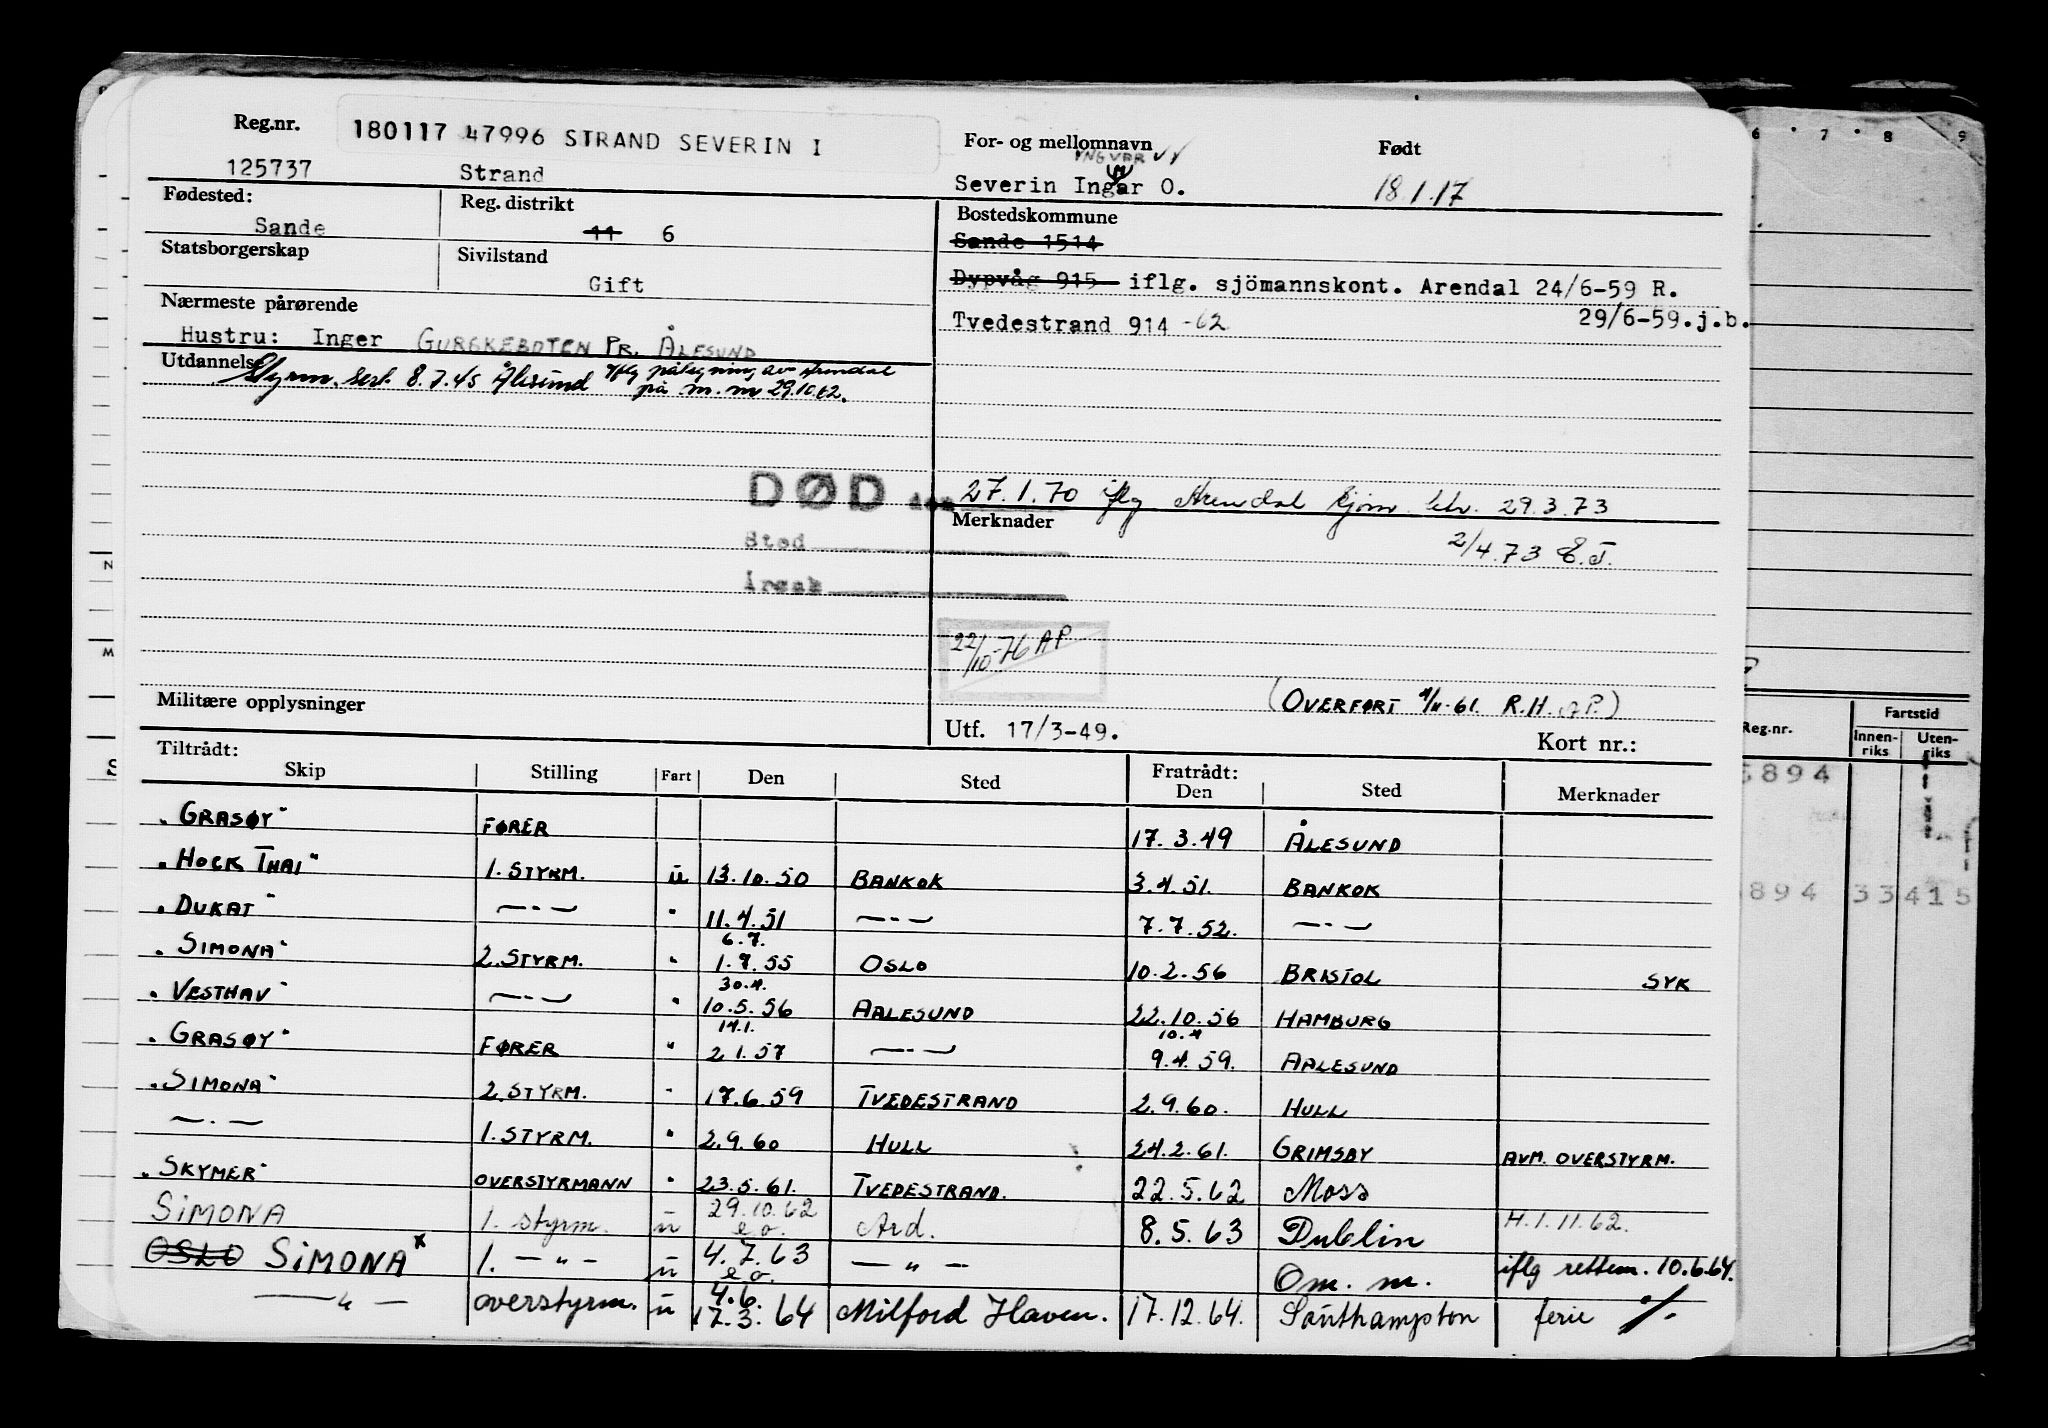 Reg.nr. 180117 47996 STRAND SEVERIN I For- og mellomnavn Født
125737 Strand Severin Ingar O. 18.1.17
YNGVAR
Fødested: Reg. distrikt Bostedskommune
Sande 11 6 Sande 1514
Statsborgerskap Sivilstand
Gift Dypvåg 915 iflg. sjömannskont. Arendal 24/6-59 R.
Nærmeste pårørende Tvedestrand 914 -62 29/6-59.j.b.
Hustru: Inger GURSKEBOTEN PR. ÅLESUND
Utdannelse Styrm. sert. 8.7.45 Ålesund iflg påtegning av Arendal
på m.m 29.10.62.
DØD den 27.1.70 iflg Arendal sjøm. 29.3.73
Merknader
Sted 2/4.73 E.J.
Årsak
22/10-76 AP
Militære opplysninger (OVERFØRT 4/11-61. R.H. AP.)
Utf. 17/3-49. Kort nr.:
Tiltrådt: Fratrådt:
Skip Stilling Fart Den Sted Den Sted Merknader
"GRASØY" FØRER 17.3.49 ÅLESUND
"HOCK THAI" 1.STYRM. u 13.10.50 BANKOK 3.4.51. BANKOK
"DUKAT" —·— " 11.4.51 —·— 7.7.52. —·—
6.7.
"SIMONA" 2.STYRM. " 1.7.55 OSLO 10.2.56 BRISTOL SYK
30.4.
"VESTHAV" —·— " 10.5.56 AALESUND 22.10.56 HAMBURG
14.1. 10.4
"GRASØY" FØRER " 2.1.57 —·— 9.4.59. AALESUND
"SIMONA" 2.STYRM. " 17.6.59 TVEDESTRAND 2.9.60. HULL
—·— 1.STYRM. " 2.9.60 HULL 24.2.61. GRIMSBY AVM. OVERSTYRM.
"SKYMER" OVERSTYRMANN " 23.5.61. TVEDESTRAND. 22.5.62 Moss
SIMONA 1. styrm. u 29.10.62 e.o. Ard. 8.5.63 Dublin H.1.11.62.
OSLO SIMONA x 1. — " — u 4.7.63 e.o. — " — Om. m. iflg rettem. 10.6.64.
4.6.
— " — overstyrm. u 17.3.64 Milford Haven. 17.12.64. Southampton ferie ./.
6 7 8 9
N
M
S
Reg.nr. Fartstid
Innen-riks Uten-riks
894
894 33415